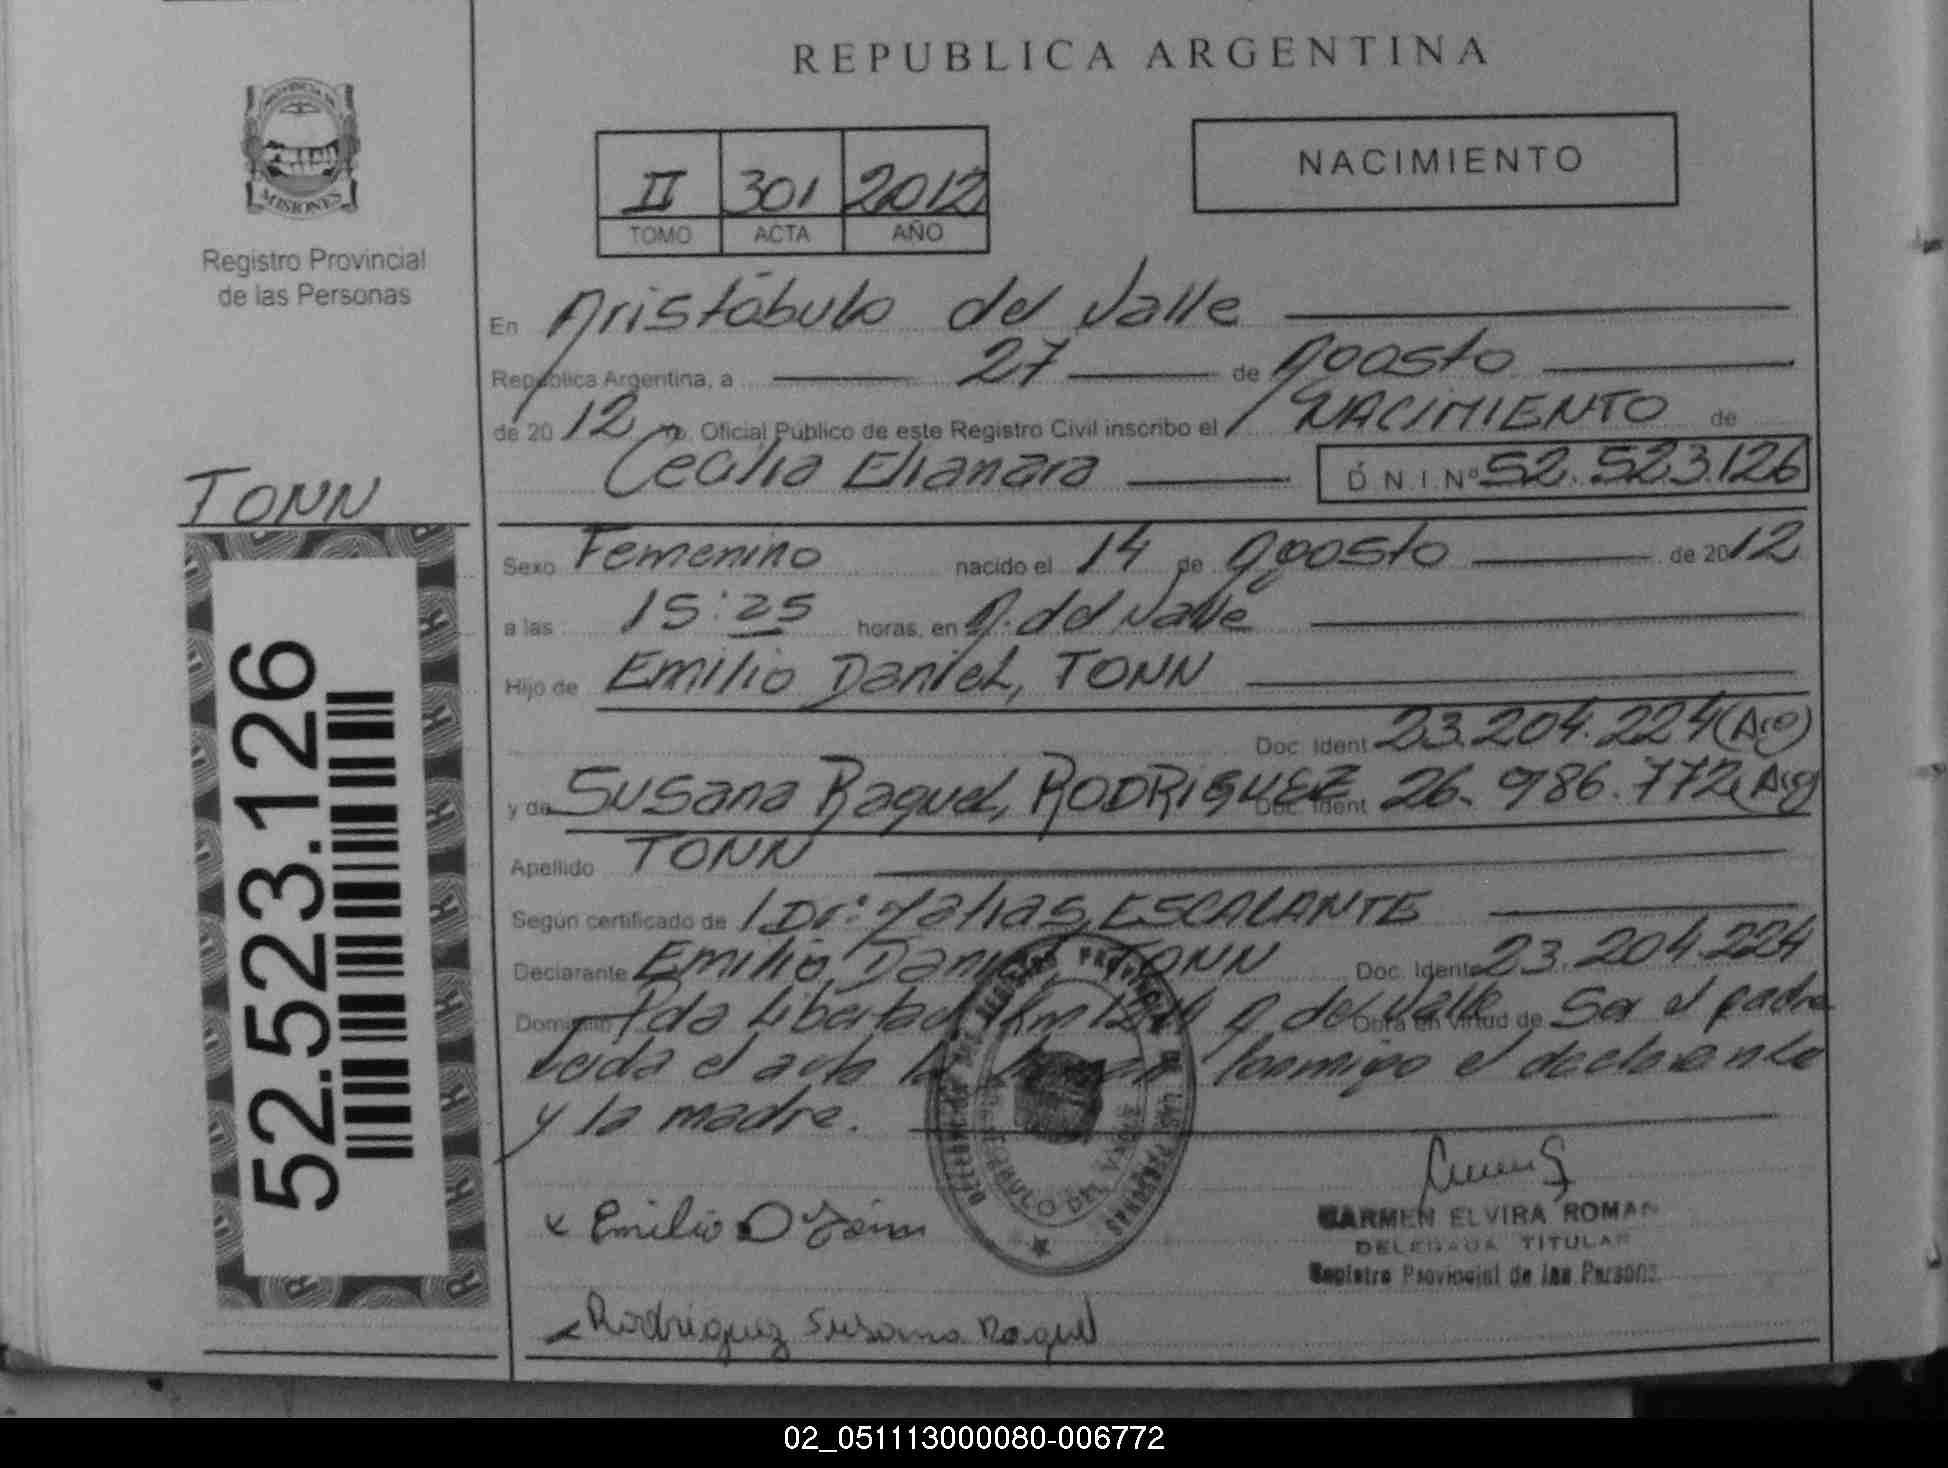 REPUBLICA ARGENTINA
PROVINCIA DE
MISIONES
Registro Provincial
de las Personas
II 301 2012
TOMO ACTA AÑO
NACIMIENTO
En Aristóbulo del Valle
República Argentina, a 27 de Agosto
de 2012 Oficial Público de este Registro Civil inscribo el NACIMIENTO de
Cecilia Elianara D.N.I.Nº 52.523.126
TONN
52.523.126
Sexo Femenino nacido el 14 de Agosto de 2012
a las 15:25 horas, en A. del Valle
Hijo de Emilio Daniel, TONN
Doc. Ident 23.204.224 (Arg)
y de Susana Raquel, RODRIGUEZ Doc. Ident 26.986.772 (Arg)
Apellido TONN
Según certificado de Dr: ESCALANTE
Declarante Emilio Daniel, TONN Doc. Ident. 23.204.224
Domicilio Pda Libertad Km A. del Valle Obra en virtud de Ser el padre
Leida el acta la conmigo el declarante
y la madre.
REGISTRO PROVINCIAL DE LAS PERSONAS
ARISTOBULO DEL VALLE
x Emilio D Tonn
CARMEN ELVIRA ROMAN
DELEGADA TITULAR
Registro Provincial de las Personas
Rodriguez Susana Raquel
02_051113000080-006772